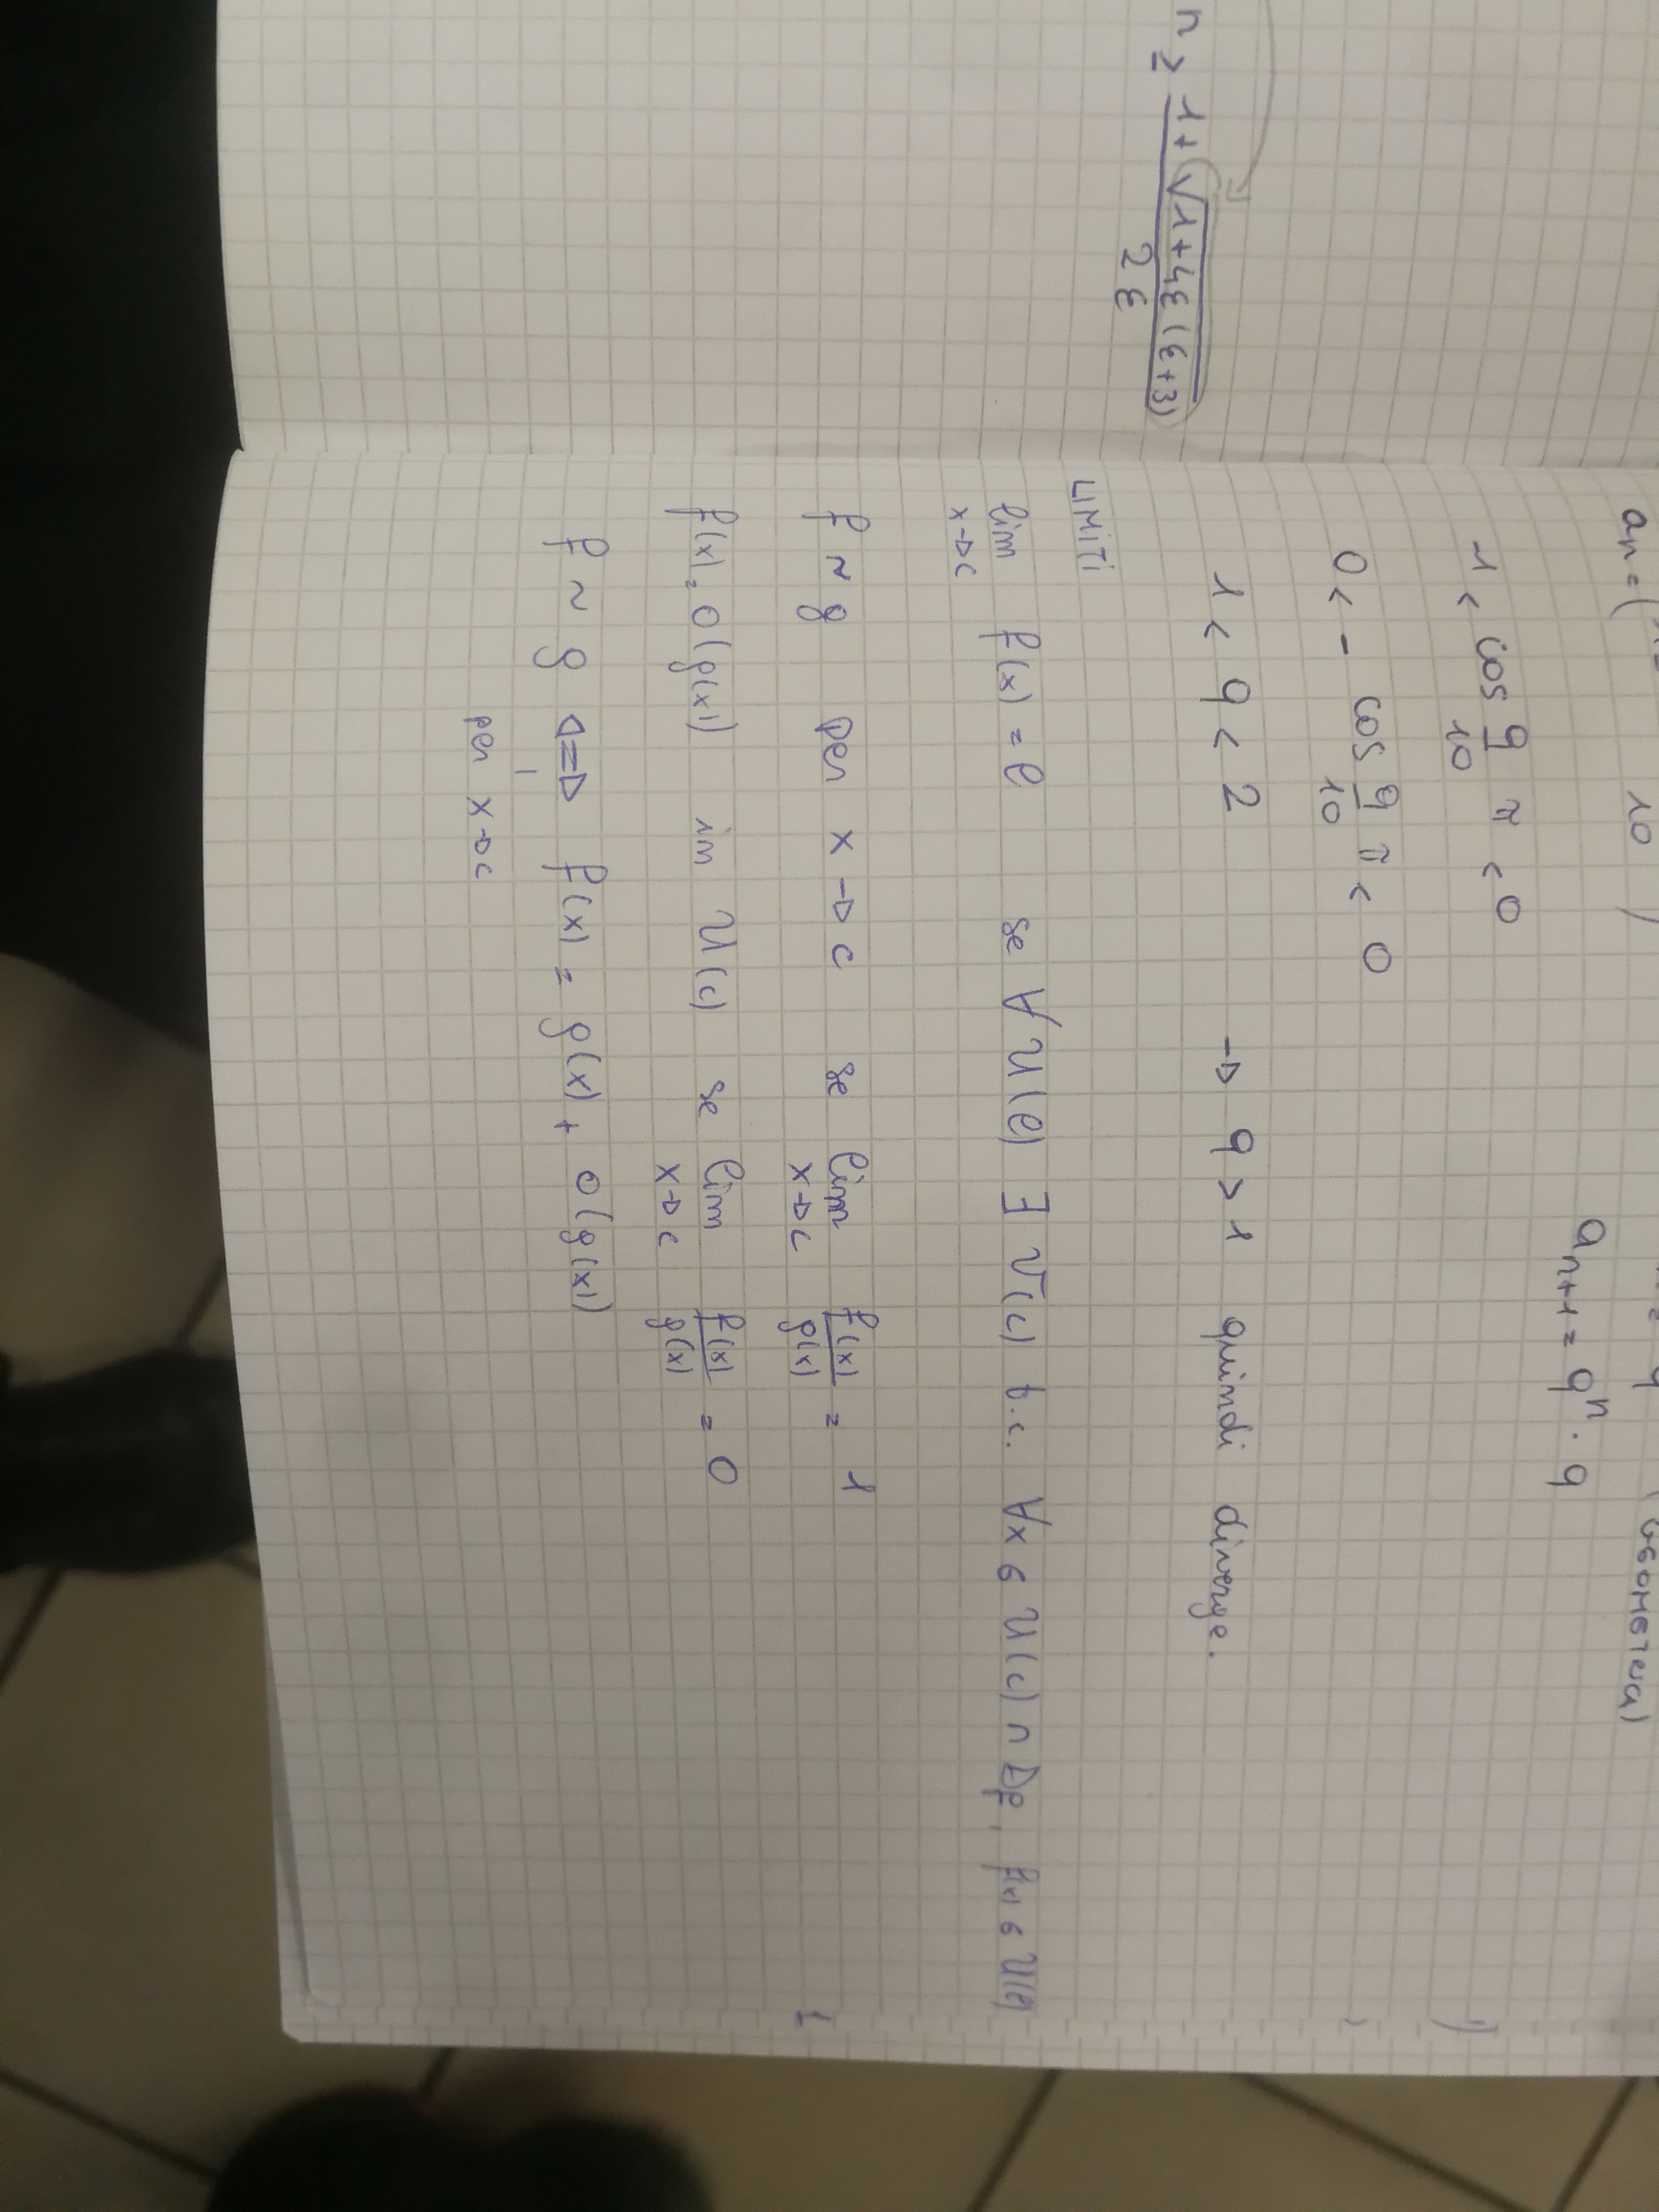 n ≥ 1+√1+4ε(ε+3)
2ε
an = (
10 )
(GEOMETRICA)
an+1 = qⁿ · q
-1 < cos 9/10 π < 0
0 < - cos 9/10 π < 0
1 < q < 2 → q > 1 quindi diverge.
LIMITI
lim x→c f(x) = l se ∀ U(l) ∃ V(c) t.c. ∀x ∈ U(c) ∩ Df, f(x) ∈ U(l)
f ~ g per x → c se lim x→c f(x)/g(x) = 1
f(x) = o(g(x)) in U(c) se lim x→c f(x)/g(x) = 0
f ~ g ⇔ f(x) = g(x) + o(g(x))
per x→c